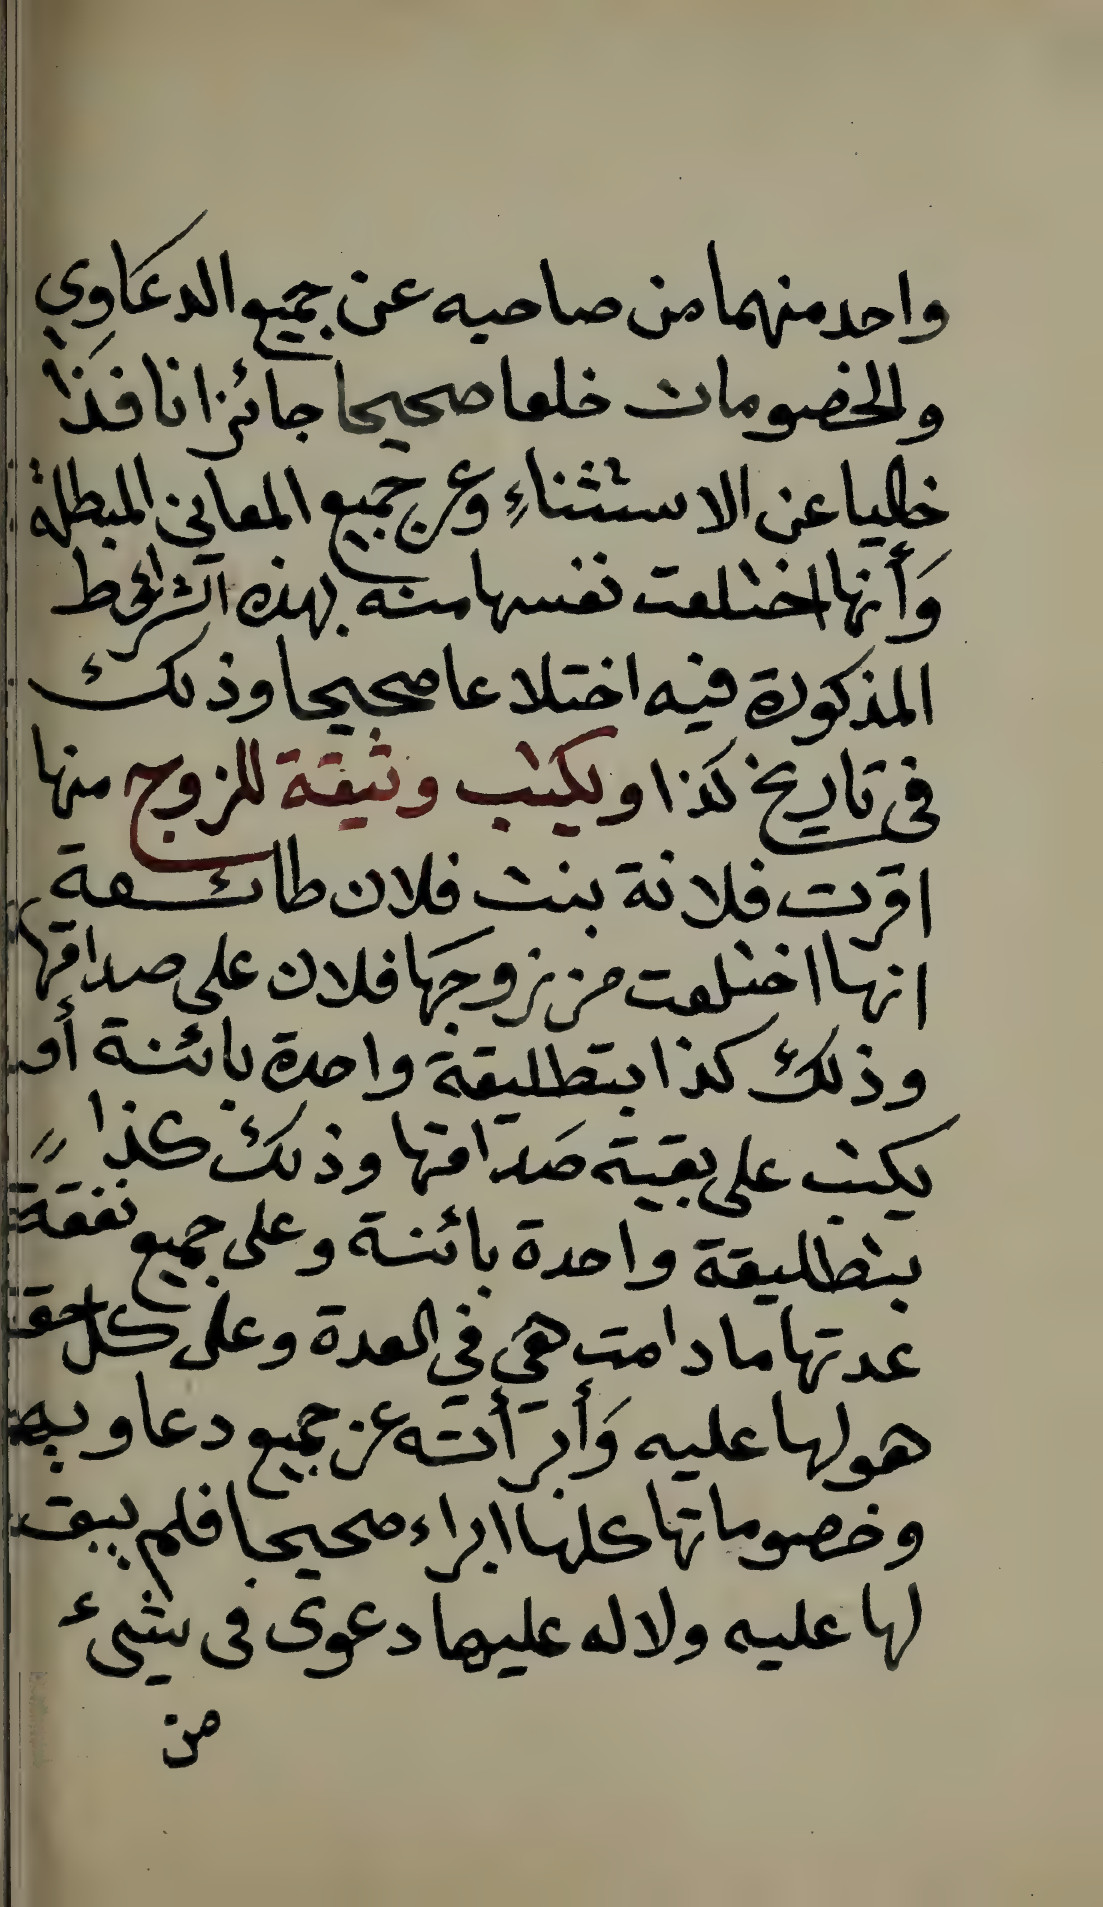 واحد منهما من صاحبه عن جميع الدعاوي
والخصومات خلعا صحيحا جائزا نافذا
خاليا عن الاستثناء وعن جميع المعاني المبطلة
وأنها اختلعت نفسها منه بهذه الشرائط
المذكورة فيه اختلاعا صحيحا وذلك
في تاريخ كذا ويكتب وثيقة للزوج منها
اقرت فلانة بنت فلان طائعة
انها اختلعت من زوجها فلان على صداقها
وذلك كذا بتطليقة واحدة بائنة أو
يكتب على بقية صداقها وذلك كذا
بتطليقة واحدة بائنة وعلى جميع نفقة
عدتها ما دامت هي في العدة وعلى كل حق
هو لها عليه وأبرأته عن جميع دعاويها
وخصوماتها كلها ابراء صحيحا فلم يبق
لها عليه ولا له عليها دعوى في شيء
من